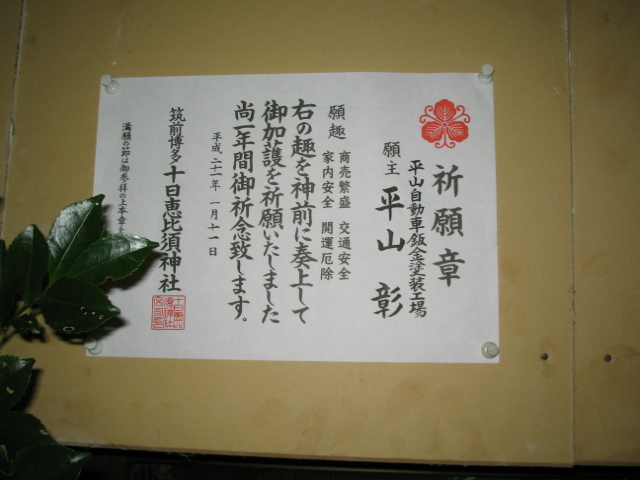 祈願章
平山自動車鈑金塗装工場
願主 平山 彰
願趣 商売繁盛 交通安全
家内安全 開運厄除
右の趣を神前に奏上して
御加護を祈願いたしました
尚一年間御祈念致します。
平成二十一年 一月十一日
筑前博多 十日恵比須神社
満願の節は御参拝の上本章を